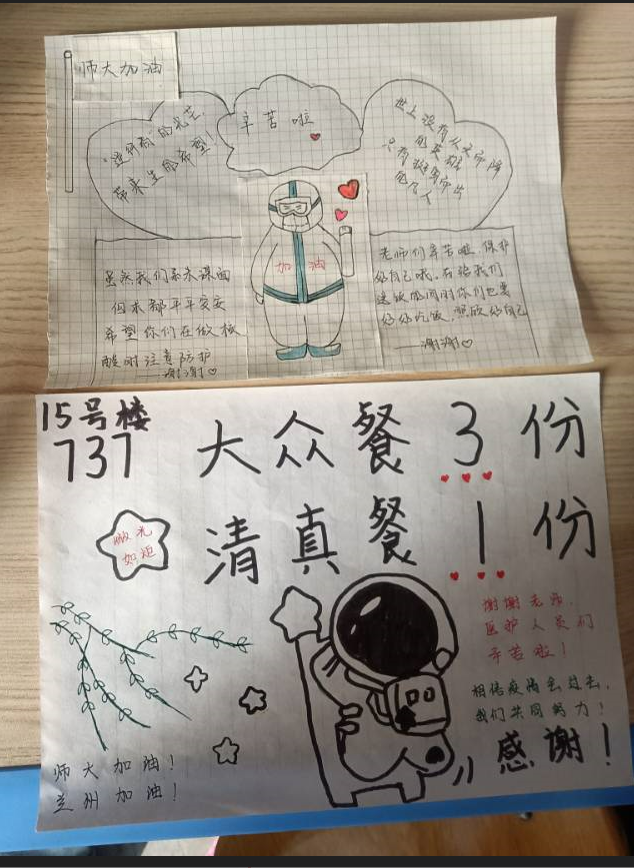 师大加油
"逆行者"的光芒
带来生的希望！
辛苦啦
世上没有从天而降
的英雄
只有挺身而出
的凡人
加油
虽然我们素未谋面
但求都平平安安
希望你们在做核
酸时注意防护
——谢谢
老师们辛苦啦 保护
好自己哦，在给我们
送饭的同时你们也要
好好吃饭，照顾好自己
——谢谢
15号楼
737
大众餐3份
清真餐1份
微光
如炬
谢谢老师，
医护人员们
辛苦啦！
相信疫情会过去，
我们共同努力！
感谢！
师大加油！
兰州加油！